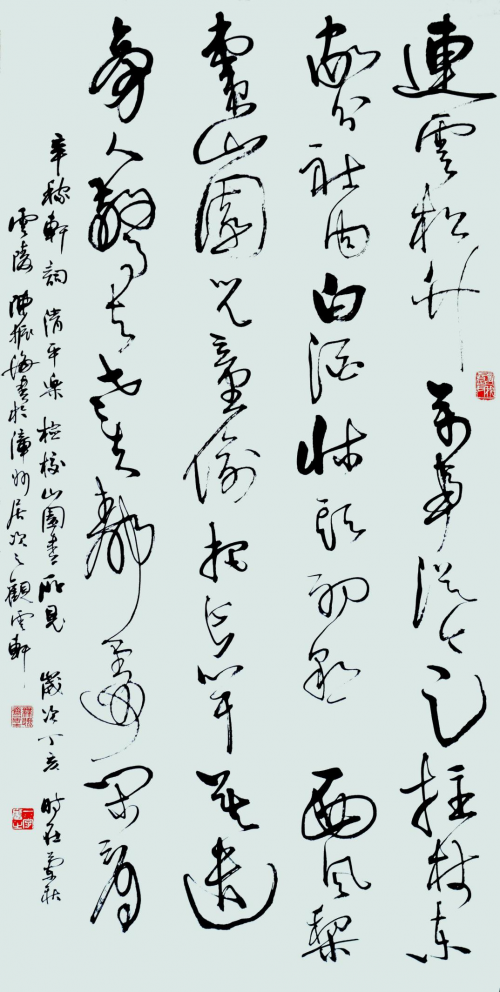 連雲松竹萬事從今足拄杖東
家分社肉白酒牀頭初熟西風梨
棗山園兒童偷把長竿莫遣
旁人驚去老夫靜處閑看
辛稼軒詞清平樂檢校山園書所見歲次丁亥時在蘭秋
雲陵陳振書於漳州居次之觀雲軒